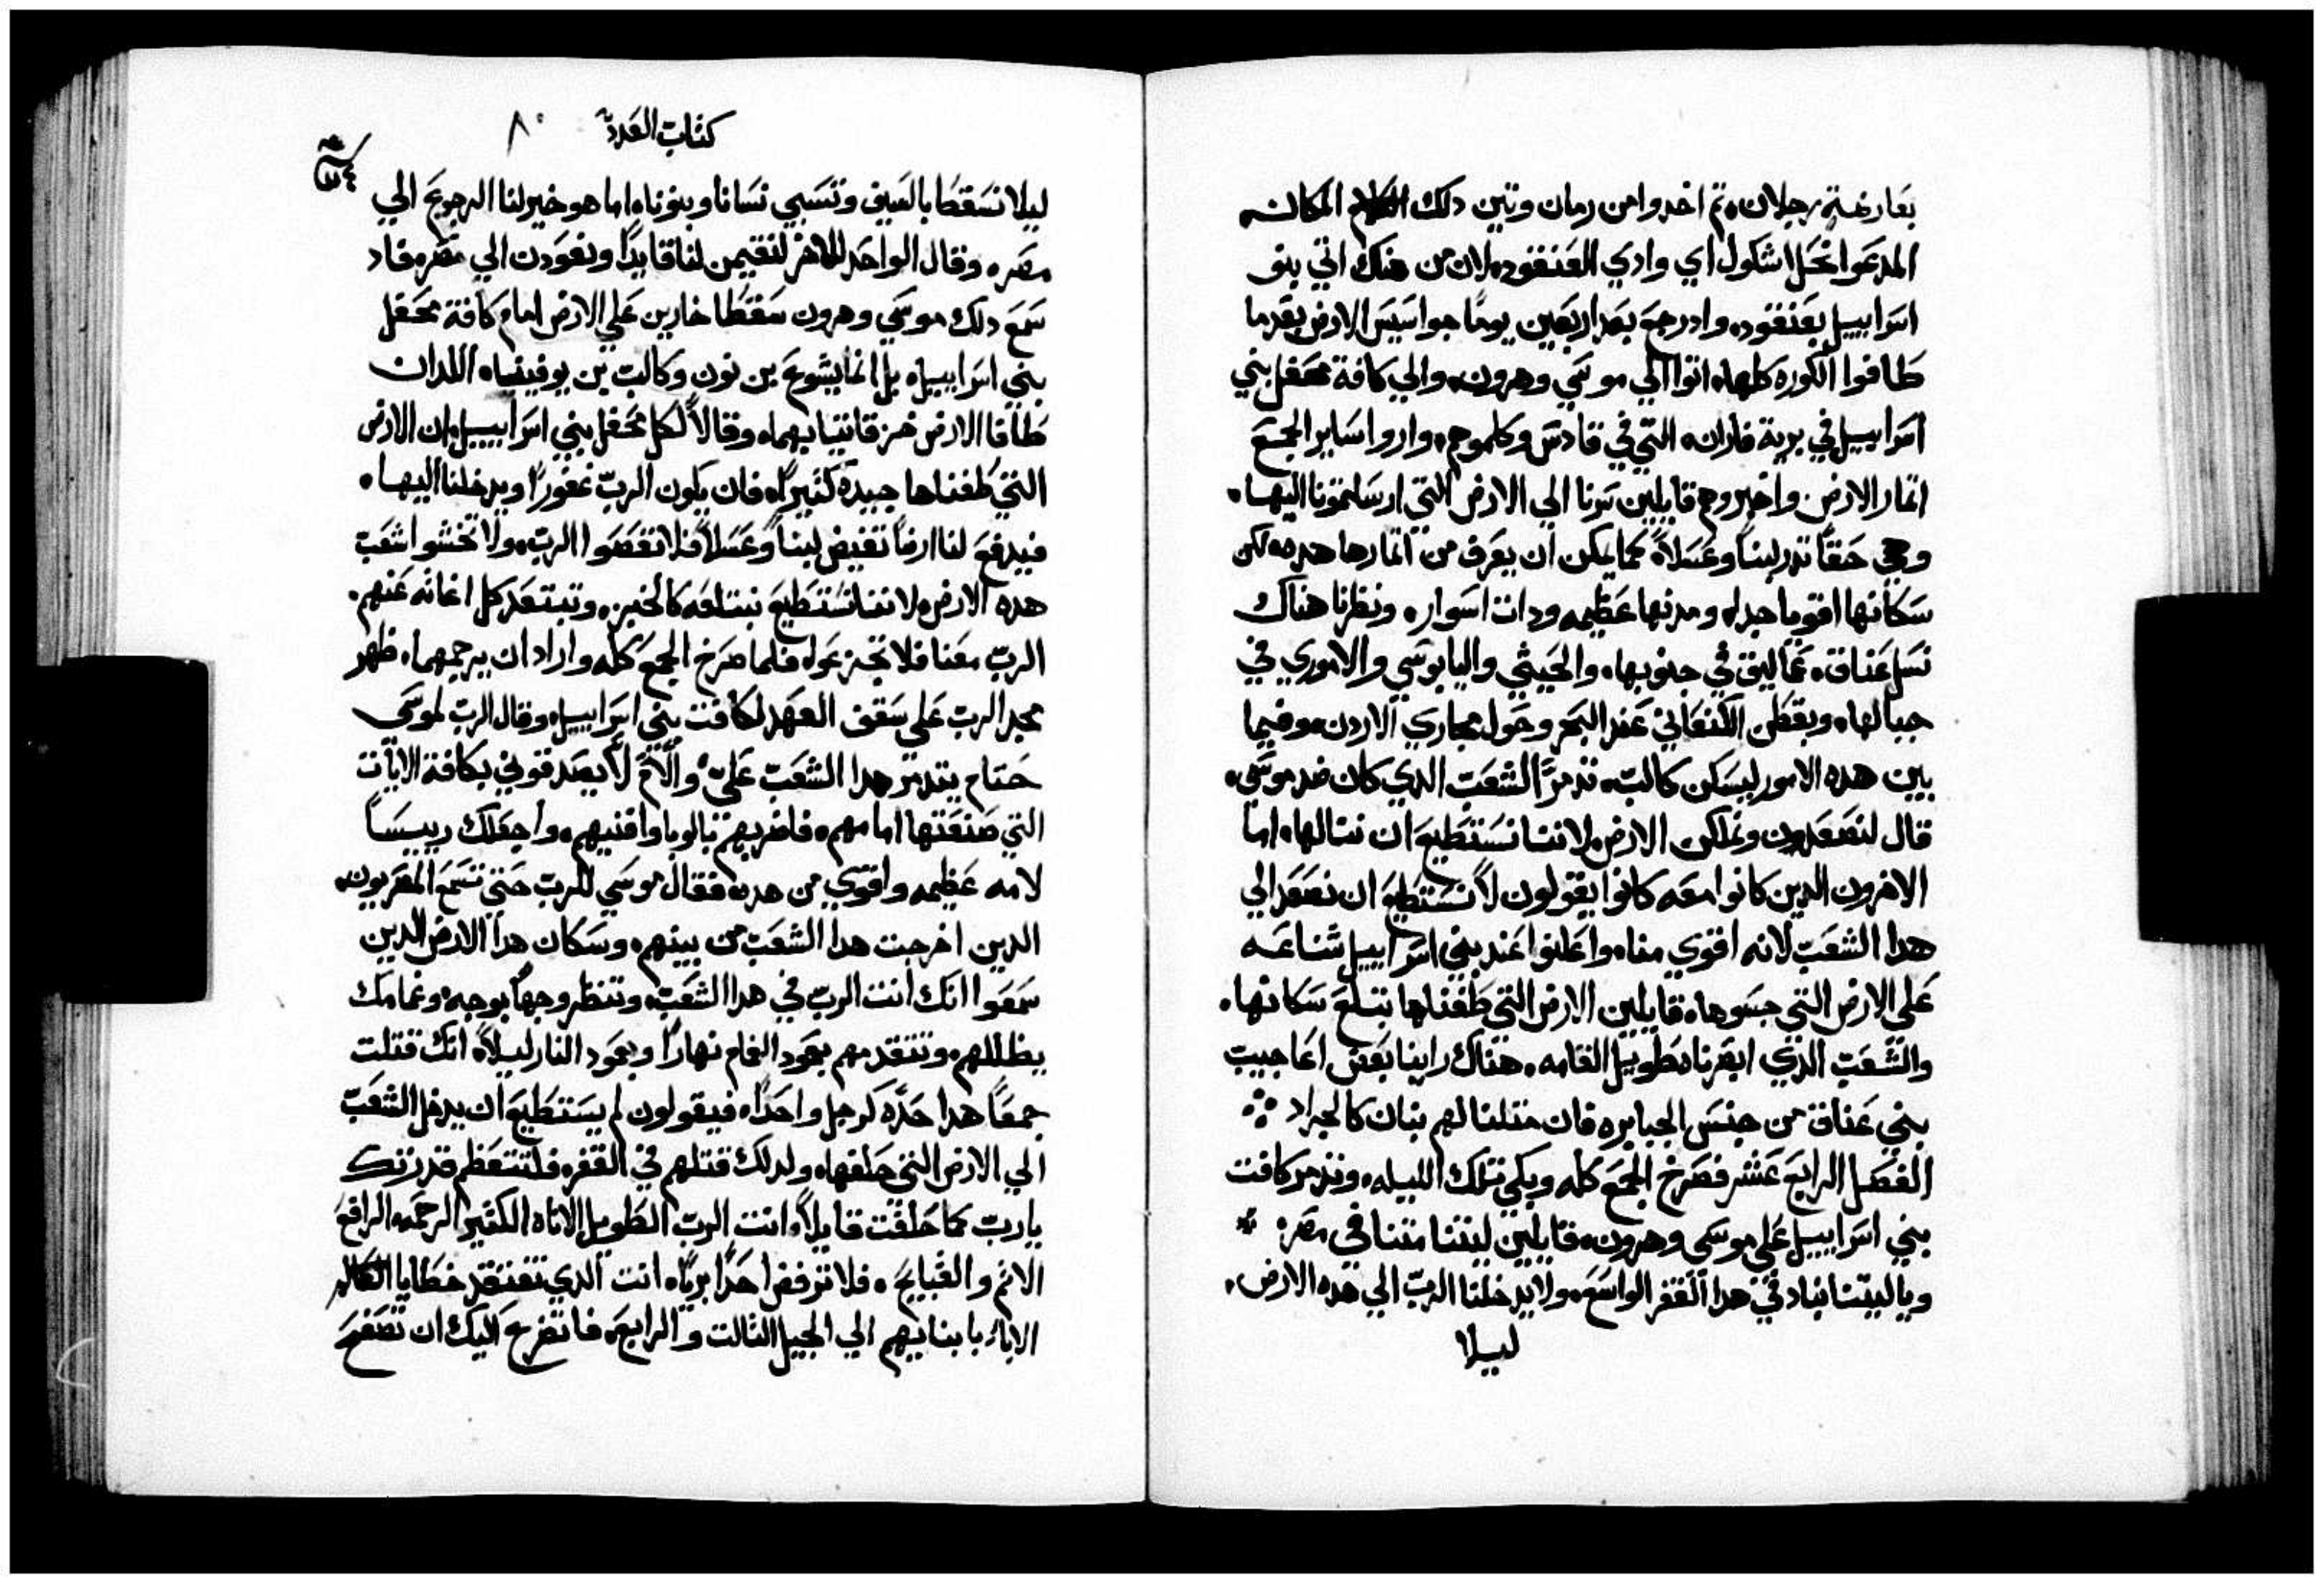 بعارضة رجلان. ثم اخدوا من رمان وتين دلك المكان
المدعوا نخل اشكول اي وادي العنقود. لان من هناك اتي بنو
اسراييل بعنقود. وادرجع بعد اربعين يوما جواسيس الارض بعدما
طافوا الكورة كلها. اتوا الي موسي وهرون. والي كافة محفل بني
اسراييل في برية فاران. التي في قادس وكلموهم. واروا ساير الجمع
اتمار الارض واخبروهم قايلين سرنا الي الارض التي ارسلتمونا اليها.
وهي حقا تدر لبنا وعسلا. كما يمكن ان يعرف من اتمارها هده. لكن
سكانها اقويا جدا. ومدنها عظيمه ودات اسوار. ونظرنا هناك
نسل عناق. عماليق في جنوبها. والحيثي واليابوسي والاموري في
جبالها. ويقطن الكنعاني عند البحر وحول مجاري الاردن. وفيما
بين هده الامور ليسكن كالب. تدمر الشعب الدي كان ضد موسي.
قال لنصعدون ونملكن الارض. لاننا نستطيع ان ننالها. اما
الاخرون الدين كانوا معه كانوا يقولون لا نستطيع ان نصعد الي
هدا الشعب لانه اقوي منا. واعلنوا عند بني اسراييل شناعه
علي الارض التي جسوها. قايلين الارض التي طفناها تبتلع سكانها.
والشعب الذي ابصرنا طويل القامه. هناك راينا بعض اعاجيب
بني عناق من جنس الجبابره فان متلنا لهم بنان كالجراد
الفصل الرابع عشر فصرخ الجمع كله وبكي تلك الليله. وتدمر كافت
بني اسراييل علي موسي وهرون. قايلين ليتنا متنا في مصر.
وياليتنا نباد في هدا القفر الواسع. ولا يدخلنا الرب الي هده الارض.
ليلا
كتاب العدد
٨٠
ليلا نسقط بالسيف وتسبي نسانا وبنونا. اما هو خير لنا الرجوع الي
مصر. وقال الواحد للاخر لنقيمن لنا قايدا ونعودن الي مصر. فاد
سمع دلك موسي وهرون سقطا خارين علي الارض امام كافة محفل
بني اسراييل. بل انما يشوع بن نون وكالب بن يوفنيا. اللدان
طافا الارض خرقا تيابهما. وقالا لكل محفل بني اسراييل. ان الارض
التي طفناها جيدة كتيرا. فان يكون الرب غفورا ويدخلنا اليها.
فيدفع لنا ارضا تفيض لبنا وعسلا. فلا تغضبوا الرب. ولا تخشوا شعب
هده الارض. لاننا نستطيع نبتلعه كالخبز. وتبتعد كل اغاثه عنهم.
الرب معنا فلا تجزعوا. فلما صرخ الجمع كله وارادان يرجمهما. ظهر
مجد الرب علي سقف العهد لكافت بني اسراييل. وقال الرب لموسي
حتام يتدمر هدا الشعب علي والام لا يصدقوني بكافة الايات
التي صنعتها امامهم. فاضربهم بالوبا وافنيهم. واجعلك رييسا
لامه عظيمه واقوي من هده. فقال موسي للرب حتي تسمع المصريون.
الدين اخرجت هدا الشعب من بينهم. وسكان هدا الارض الدين
سمعوا انك انت الرب في هدا الشعب. وتنظر وجها بوجه. وغمامك
يظللهم. وتتقدمهم بعمود الغمام نهارا وبعمود النار ليلا. انك قتلت
جمعا هدا حده كرجل واحدا. فيقولون لم يستطيع ان يدخل الشعب
الي الارض التي حلفها. ولدلك قتلهم في القفر. فلتتعظم قدرتك
يارب كما حلفت قايلا. انت الرب الطويل الاناه الكتير الرحمه. الرافع
الاتم والقبايح. فلا ترفض احدا بريا. انت الدي تفتقد خطايا
الابا. بابنايهم الي الجيل التالت والرابع. فاتضرع اليك ان تصفح